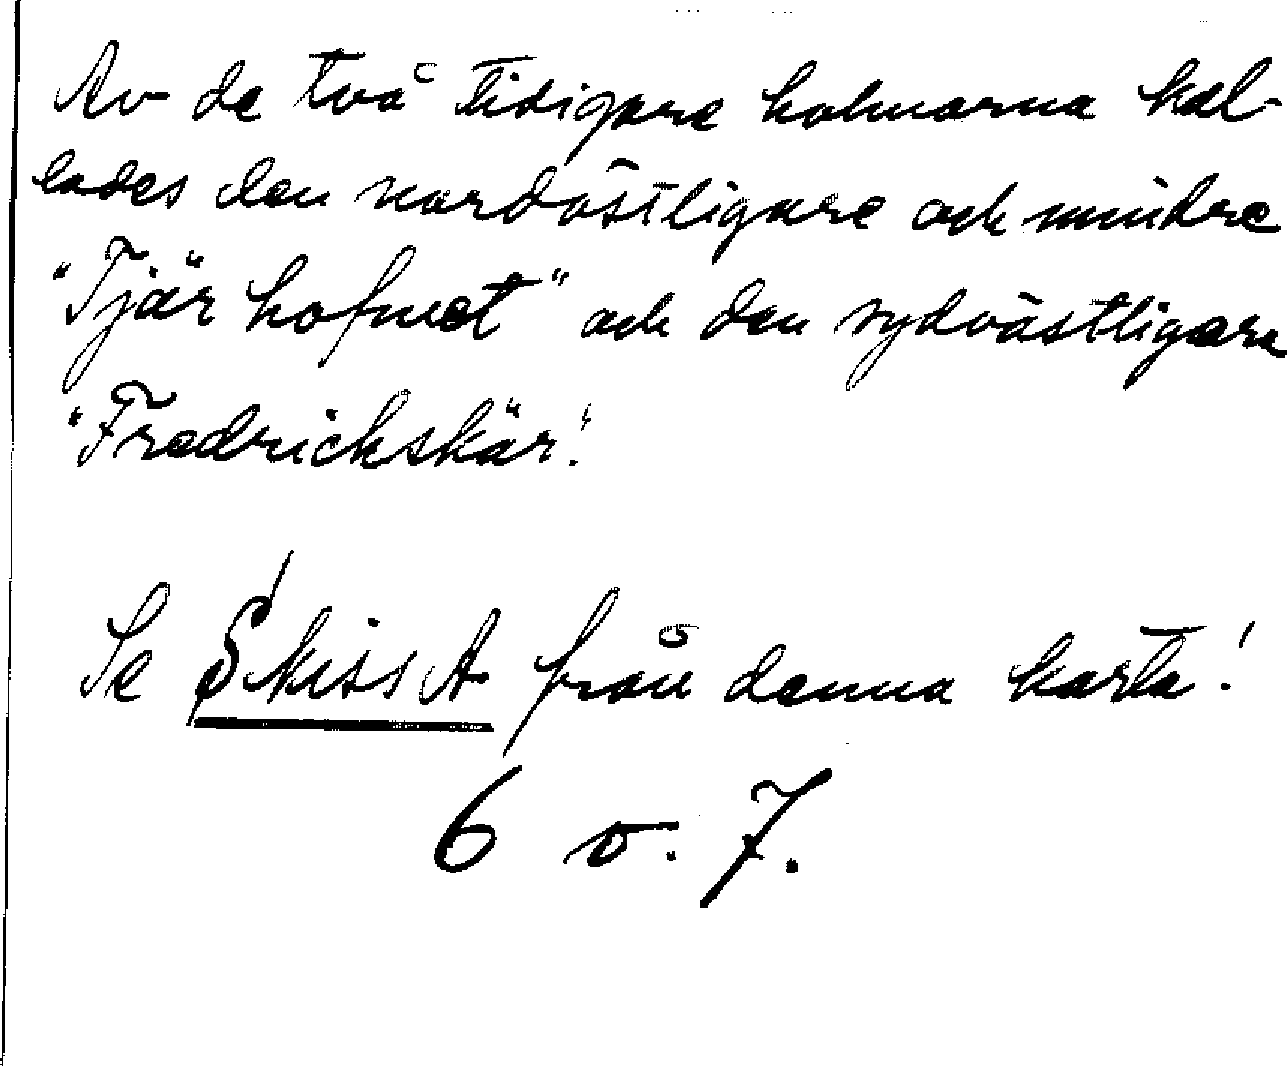 Av de två tidigare holmarna kal-
lades den nordöstligare och mindre
"Tjär hofmet" och den sydvästligare
"Fredrickskär".
Se Skiss A från denna karta!
6 o. 7.